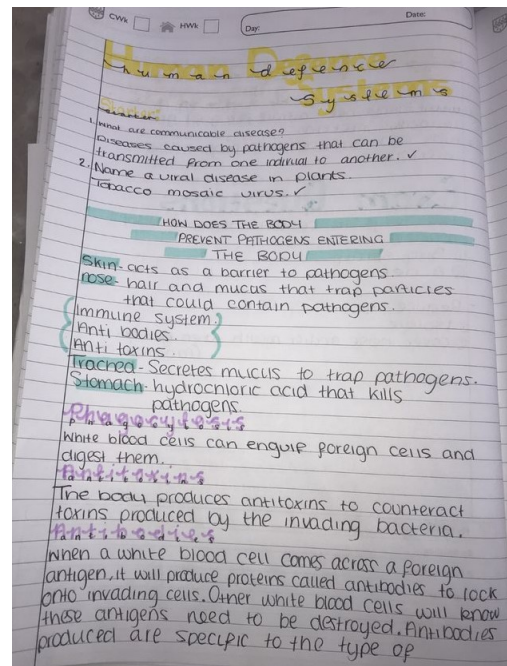 CWK HWK Day: Date:
Human Defence
human defence
Systems
systems
Starter
1. What are communicable disease?
Diseases caused by pathogens that can be
transmitted from one indiviual to another. ✓
2. Name a viral disease in plants.
Tobacco mosaic virus. ✓
HOW DOES THE BODY
PREVENT PATHOGENS ENTERING
THE BODY
Skin - acts as a barrier to pathogens.
nose - hair and mucus that trap particles
that could contain pathogens.
Immune system.
Anti bodies.
Anti toxins.
Trachea - Secretes mucus to trap pathogens.
Stomach - hydrochloric acid that kills
pathogens.
Phagocytosis
White blood cells can engulf foreign cells and
digest them.
Antitoxins
The body produces antitoxins to counteract
toxins produced by the invading bacteria.
Antibodies
When a white blood cell comes across a foreign
antigen, it will produce proteins called antibodies to lock
onto invading cells. Other white blood cells will know
these antigens need to be destroyed. Antibodies
produced are specific to the type of